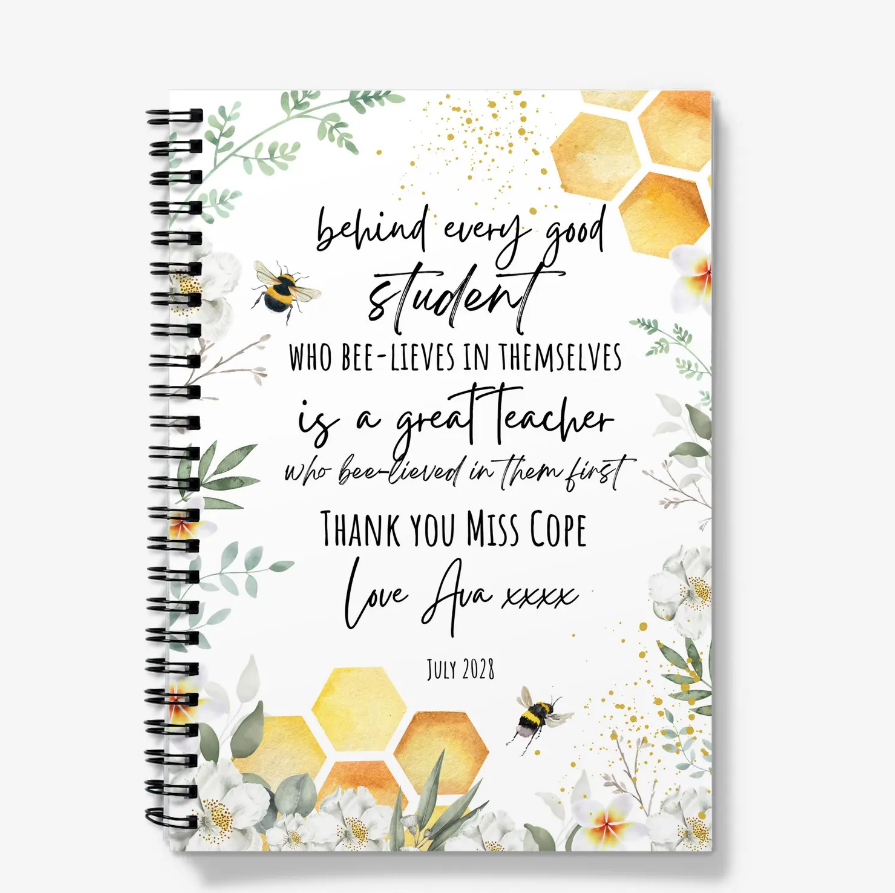 behind every good
student
WHO BEE-LIEVES IN THEMSELVES
is a great teacher
who bee-lieved in them first
THANK YOU MISS COPE
love Ava xxxx
JULY 2028